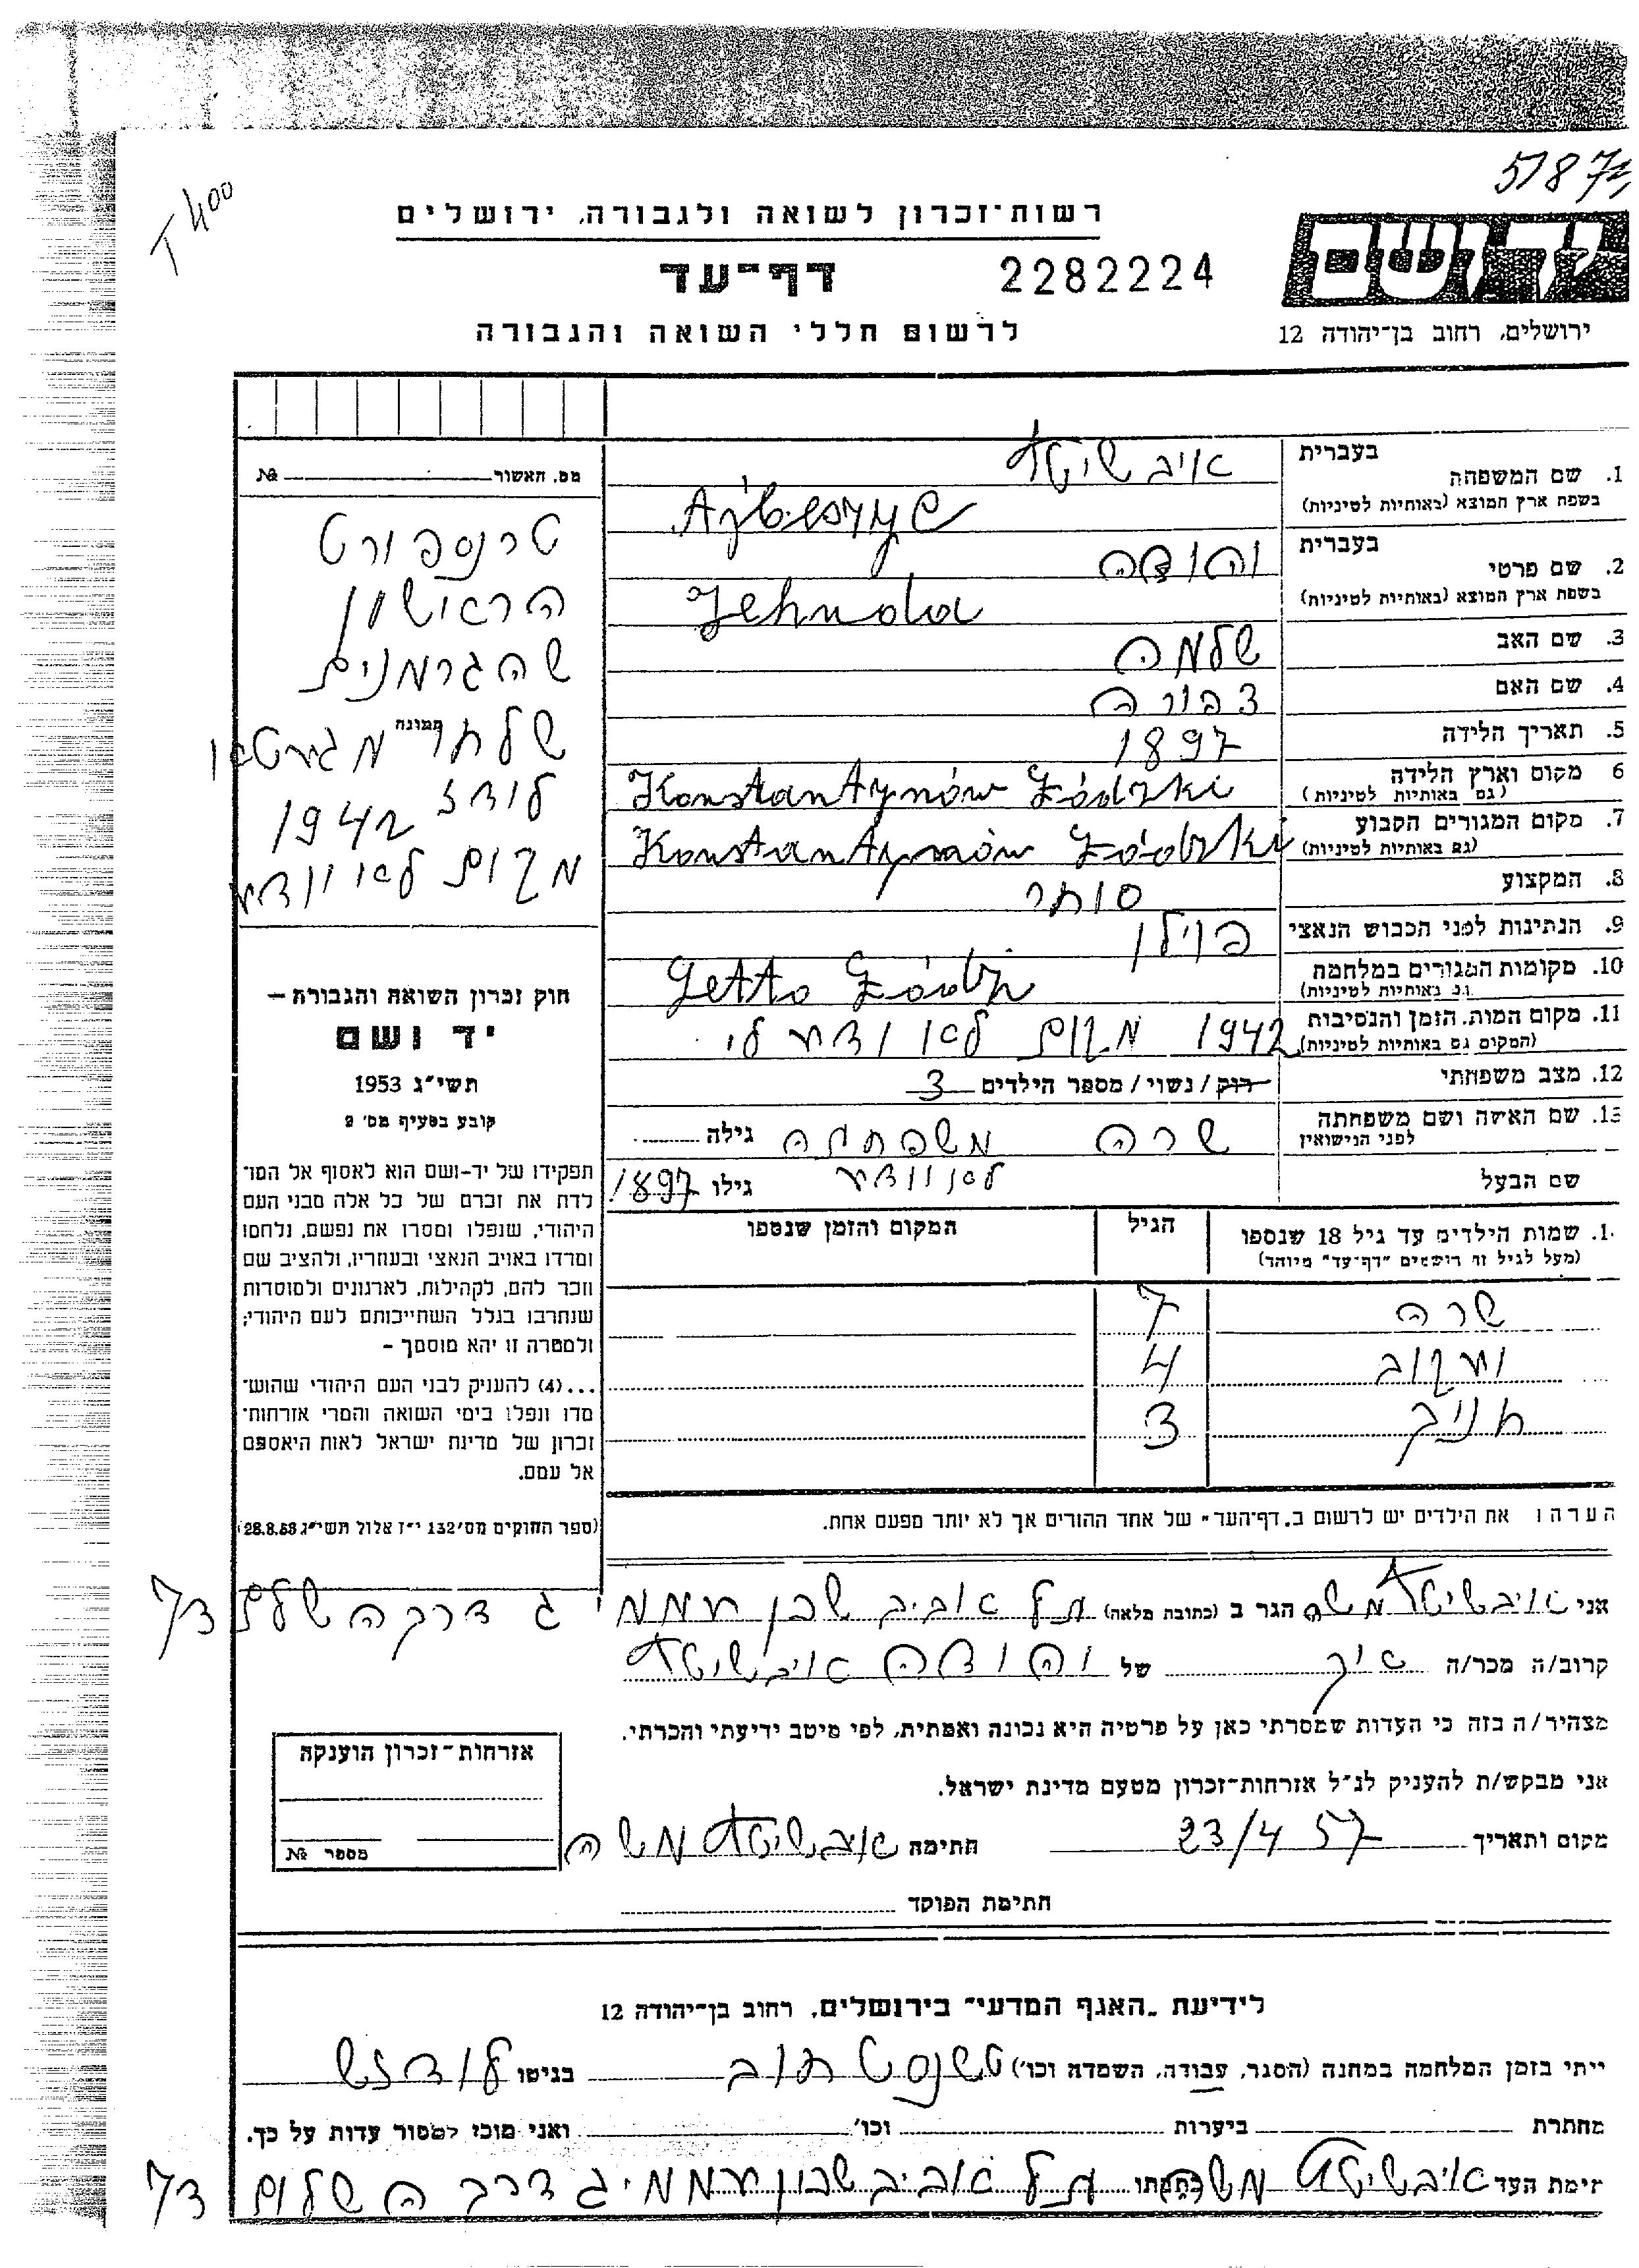 5187
T 400
רשות־זכרון לשואה ולגבורה, ירושלים
יד ושם
דף־עד
2282224
לרשום חללי השואה והגבורה
ירושלים, רחוב בן־יהודה 12
מס. האשור № 
1. שם המשפחה
בעברית
אויבשיטץ
בשפת ארץ המוצא (באותיות לטיניות)
Ajbeszyc
2. שם פרטי
בעברית
יהודה
בשפת ארץ המוצא (באותיות לטיניות)
Jehuda
3. שם האב שלמה
4. שם האם צפורה
5. תאריך הלידה 1897
6 מקום וארץ הלידה
(גם באותיות לטיניות)
Konstantynów Łódzki
7. מקום המגורים הקבוע
(גם באותיות לטיניות)
Konstantynów Łódzki
8. המקצוע סוחר
9. הנתינות לפני הכבוש הנאצי פוילן
10. מקומות המגורים במלחמה
(גם באותיות לטיניות)
Getto Łódź
11. מקום המות, הזמן והנסיבות
(המקום גם באותיות לטיניות)
1942 מקום לא ידוע לי
12. מצב משפחתי רוק / נשוי / מספר הילדים 3
13. שם האשה ושם משפחתה
לפני הנישואין
שרה משפחתה גילה
לא ידוע
שם הבעל גילו 1897
1. שמות הילדים עד גיל 18 שנספו הגיל המקום והזמן שנספו
(מעל לגיל זה רושמים "דף־עד" מיוחד)
שרה 7
יעקוב 4
3
הערה: את הילדים יש לרשום ב„דף־העד" של אחד ההורים אך לא יותר מפעם אחת.
טרנספורט
הראישון
שהגרמנים
תמונה
שלחו מגיטאו
לודז
1942
מקום לא יודע
חוק זכרון השואה והגבורה –
יד ושם
תשי"ג 1953
קובע בסעיף מס' 2
תפקידו של יד-ושם הוא לאסוף אל המו־
לדת את זכרם של כל אלה מבני העם
היהודי, שנפלו ומסרו את נפשם, נלחמו
ומרדו באויב הנאצי ובעוזריו, ולהציב שם
וזכר להם, לקהילות, לארגונים ולמוסדות
שנחרבו בגלל השתייכותם לעם היהודי;
ולמטרה זו יהא מוסמך –
...(4) להעניק לבני העם היהודי שהוש־
מדו ונפלו בימי השואה והמרי אזרחות־
זכרון של מדינת ישראל לאות היאספם
אל עמם.
(ספר החוקים מס' 132 י"ז אלול תשי"ג 28.8.53)
אני אויבשיטץ משה הגר ב (כתובת מלאה) תל אביב שכון עממי ג דרך השלום 73
קרוב/ה מכר/ה אח של יהודה אויבשיטץ
מצהיר/ה בזה כי העדות שמסרתי כאן על פרטיה היא נכונה ואמתית, לפי מיטב ידיעתי והכרתי.
אני מבקש/ת להעניק לנ"ל אזרחות־זכרון מטעם מדינת ישראל.
מקום ותאריך 23/4 57 חתימה אויבשיטץ משה
חתימת הפוקד
אזרחות־זכרון הוענקה
מספר №
לידיעת „האגף המדעי" בירושלים, רחוב בן־יהודה 12
ייתי בזמן המלחמה במחנה (הסגר, עבודה, השמדה וכו') בגיטו לודז
מחתרת ביערות וכו' ואני מוכן למסור עדות על כך.
תימת העד אויבשיטץ משה כתבתו תל אביב שכון עממי ג דרך השלום 73